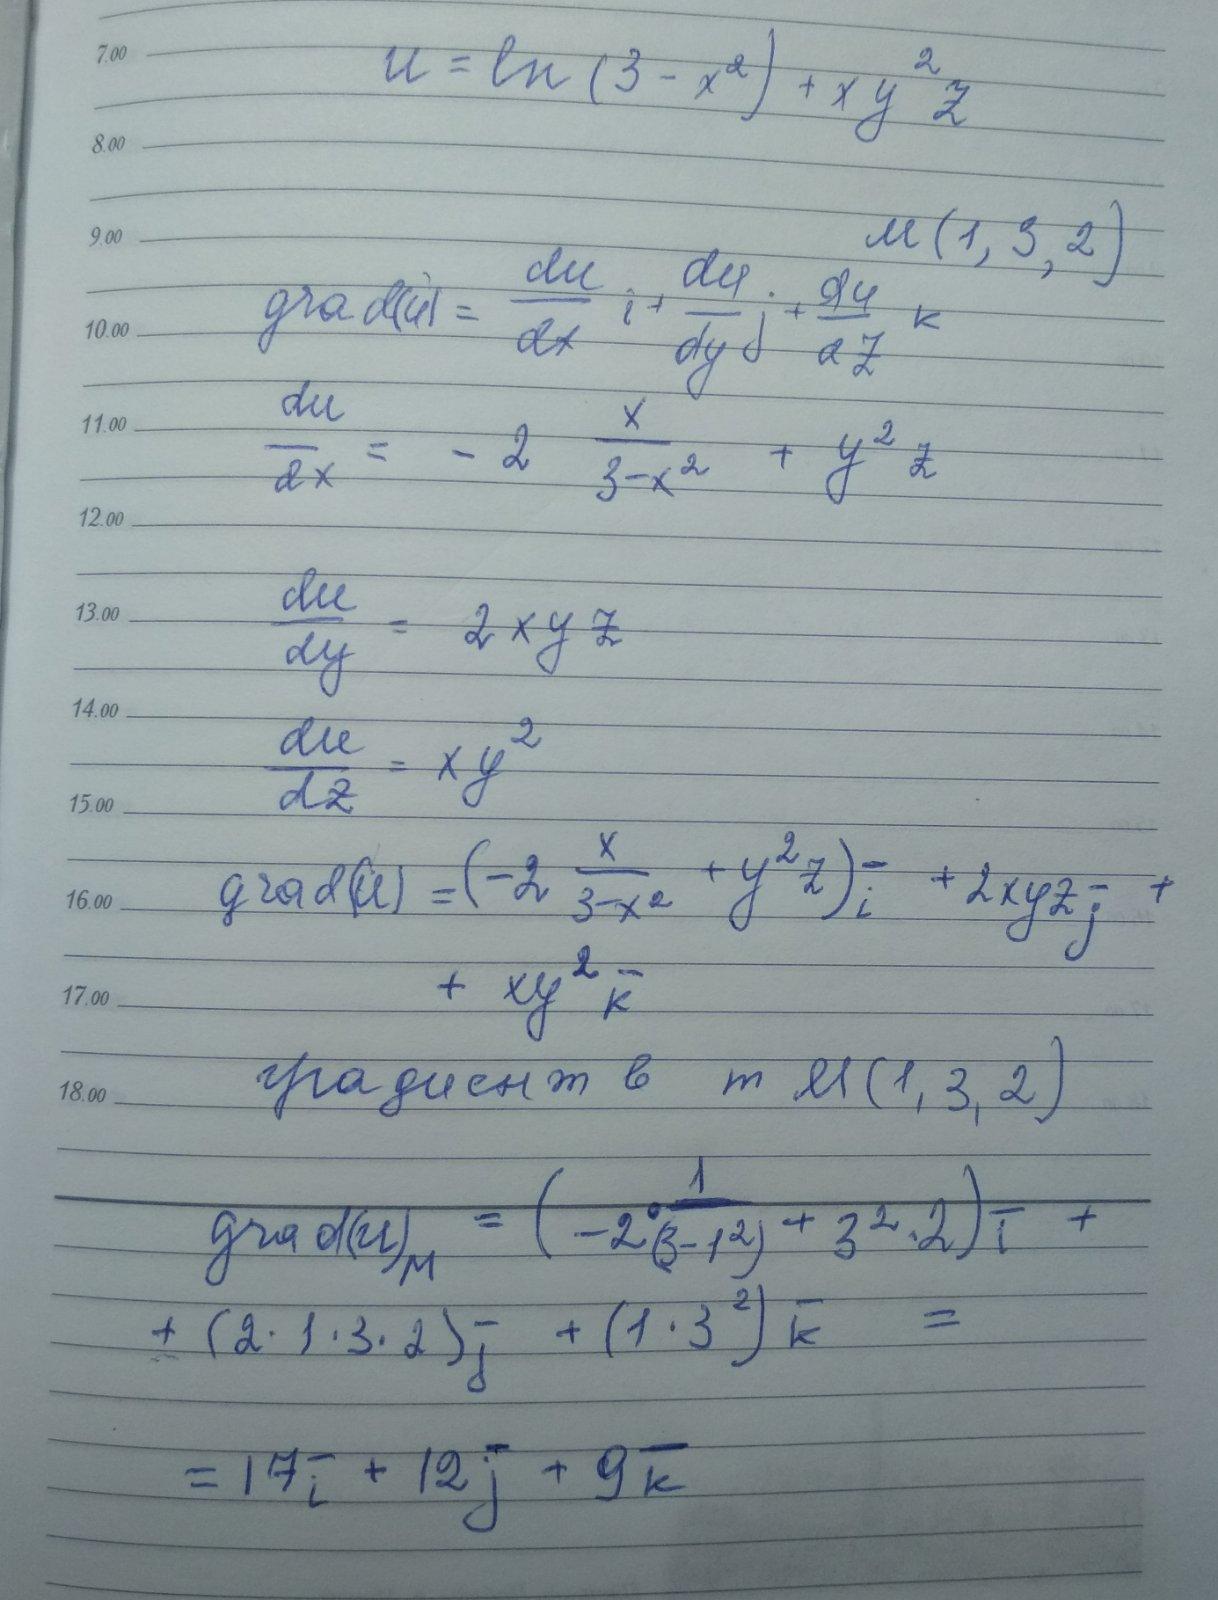 7.00
u = ln (3 - x²) + xy²z
8.00
9.00
M(1, 3, 2)
grad(u) = du/dx i + du/dy j + du/dz k
10.00
11.00
du/dx = - 2 x/(3-x²) + y² z
12.00
13.00
du/dy = 2 x y z
14.00
du/dz = x y²
15.00
grad(u) = (-2 x/(3-x²) + y²z) i̅ + 2xyz j̅ +
16.00
+ xy² k̅
17.00
градиент в т M(1, 3, 2)
18.00
grad(u)M = (-2 · 1/(3-1²) + 3²·2) i̅ +
+ (2·1·3·2) j̅ + (1·3²) k̅ =
= 17 i̅ + 12 j̅ + 9 k̅